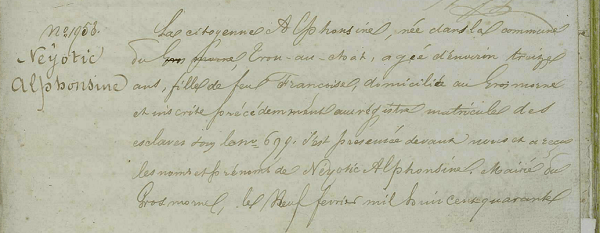 No 1958.
Neyotic
Alphonsine
La citoyenne Alphonsine, née dans la commune
du Gros morne, Trou-au-chat, agée d'environ treize
ans, fille de feu Françoise, domiciliée au Gros morne
et inscrite précédemment au registre matricule des
esclaves sous le no 699. s'est présentée devant nous et a reçu
les noms et prénoms de Neyotic Alphonsine. Mairie du
Gros morne, le Neuf février mil huit cent quarante